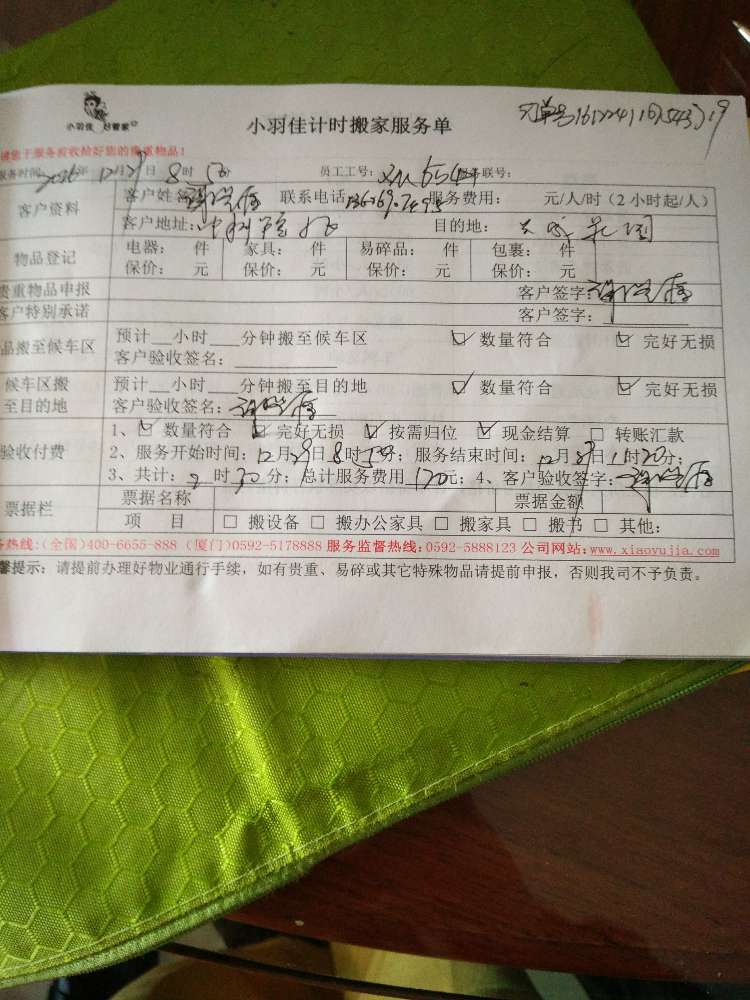 小羽佳 好管家
小羽佳计时搬家服务单
请您于服务前收拾好您的贵重物品!
服务时间: 2016年12月29日8时50分 员工工号: 654 联号:
客户资料 客户姓名: 联系电话: 服务费用: 元/人/时(2小时起/人)
客户地址: 中科院 目的地: 花园
物品登记 电器: 件 家具: 件 易碎品: 件 包裹: 件
保价: 元 保价: 元 保价: 元 保价: 元
贵重物品申报 客户签字:
客户特别承诺 客户签字:
品搬至候车区 预计__小时___分钟搬至候车区 ☑ 数量符合 ☑ 完好无损
客户验收签名:
候车区搬至目的地 预计__小时___分钟搬至目的地 ☑ 数量符合 ☑ 完好无损
客户验收签名:
验收付费 1、☑ 数量符合 ☑ 完好无损 ☑ 按需归位 ☑ 现金结算 □ 转账汇款
2、服务开始时间: 12月29日8时50分; 服务结束时间: 12月29日11时20分;
3、共计: 2时30分; 总计服务费用170元; 4、客户验收签字:
票据栏 票据名称 票据金额
项 目 □ 搬设备 □ 搬办公家具 □ 搬家具 □ 搬书 □ 其他:
务热线:(全国)400-6655-888 (厦门)0592-5178888 服务监督热线:0592-5888123 公司网站:www.xiaoyujia.com
馨提示: 请提前办理好物业通行手续, 如有贵重、易碎或其它特殊物品请提前申报, 否则我司不予负责。